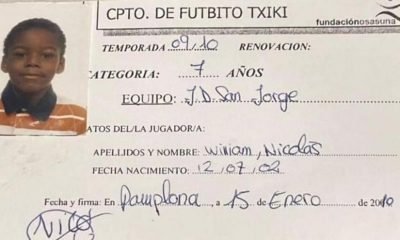 CPTO. DE FUTBITO TXIKI
fundaciónosasuna
TEMPORADA 09,10 RENOVACION:
CATEGORIA: 7 AÑOS
EQUIPO: J.D. San Jorge
ATOS DEL/LA JUGADOR/A:
APELLIDOS Y NOMBRE: Wiriam, Nicolás
FECHA NACIMIENTO: 12,07,02
Fecha y firma: En Pamplona, a 15 de Enero de 2010
Nico